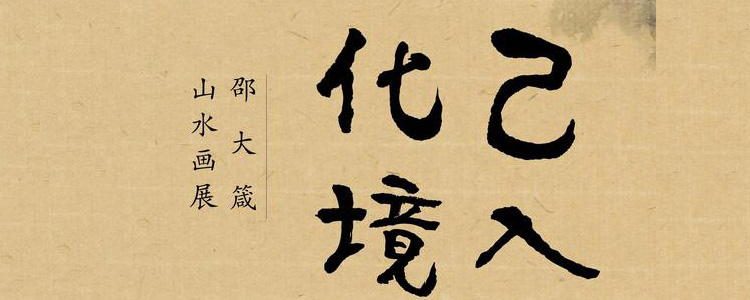 已入
化境
邵大箴
山水画展